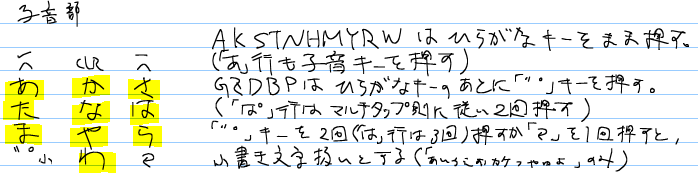 子音部
AKSTNHMYRWはひらがなキーをまま押す。
へ CLR へ (「あ」行も子音キーを押す)
あ か さ GZDBPはひらがなキーのあとに「゛゜」キーを押す。
た な は (「ぱ」行はマルチタップ則に従い2回押す)
ま や ら 「゛゜」キーを2回(「は」行は3回)押すか「〜」を1回押すと,
゛゜小 わ 〜 小書き文字扱いとする(「あいうえおかけつやゆよ」のみ)